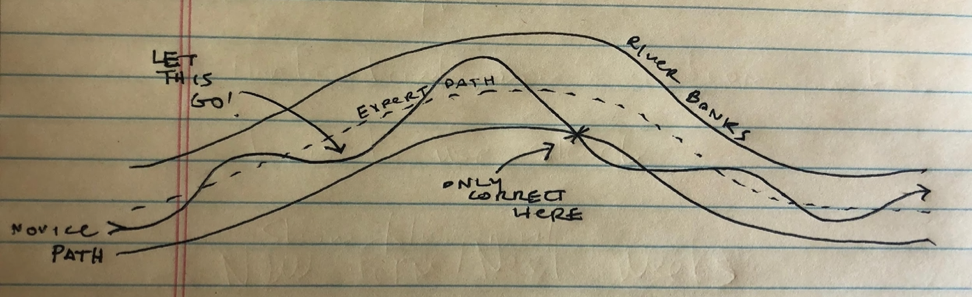 LET
THIS
GO!
EXPERT PATH
RIVER BANKS
ONLY
CORRECT
HERE
NOVICE
PATH